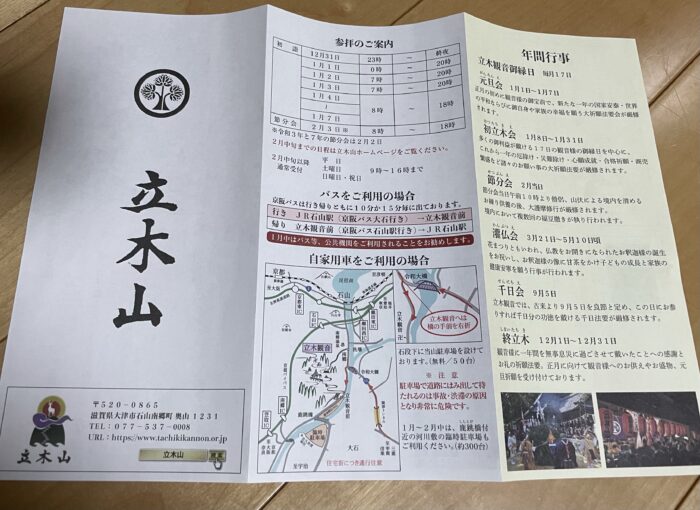 立木山
立木山
〒520-0865
滋賀県大津市石山南郷町奥山1231
TEL：077-537-0008
URL：https://www.tachikikannon.or.jp
立木山
検索
参拝のご案内
初詣
12月31日 23時 ～ 終夜
1月1日 0時 ～ 20時
1月2日 7時 ～ 20時
1月3日 7時 ～ 20時
1月4日
～
1月7日
8時 ～ 18時
節分会 2月3日※ 8時 ～ 18時
※令和3年と7年の節分会は2月2日
2月中旬までの日程は立木山ホームページをご覧ください。
2月中旬以降 平日
通常受付 土曜日 9時～16時まで
日曜日・祝日
バスをご利用の場合
京阪バスは行き帰りともに10分か15分毎に出ております。
行き JR石山駅（京阪バス大石行き）→立木観音前
帰り 立木観音前（京阪バス石山駅行き）→JR石山駅
1月中はバス等、公共機関をご利用されることをお勧めします。
自家用車をご利用の場合
京都
琵琶湖
石山
立木観音
南郷
大石
鹿跳橋
至宇治
住宅街につき通行注意
令和大橋
立木観音へは
橋の手前を右折
石段下に当山駐車場を設けて
おります。（無料／50台）
※注意
駐車場で道路にはみ出して待
たれるのは事故・渋滞の原因
となり非常に危険です。
1月～2月中は、鹿跳橋付
近の河川敷の臨時駐車場も
ご利用ください。（約300台）
年間行事
立木観音御縁日 毎月17日
元旦会 1月1日～1月7日
正月の初めに観音様の御宝前で、新たな一年の国家安泰・世界
の平和ならびに御自身や家族の幸福を願う大祈願法要会が厳修さ
れます。
初立木会 1月8日～1月31日
多くの御利益が授ける17日の観音様の御縁日を中心に、
これから一年の厄除け・災難除け・心願成就・合格祈願・商売
繁盛など諸々のお願い事の大祈願法要が厳修されます。
節分会 2月当日
節分会当日午前10時より僧侶、山伏による境内を清める
お練り供養の後、大護摩修行が厳修されます。
境内において複数回の福豆撒きが執り行われます。
灌仏会 3月21日～5月10日頃
花まつりともいわれ、仏教をお開きになられたお釈迦様の誕生
をお祝いし、お釈迦様の像に甘茶をかけ子どもの成長と家族の
健康安寧を願う行事が行われます。
千日会 9月5日
立木観音では、古来より9月5日を良節と定め、この日にお参
りすれば千日分の功徳を戴ける千日法要が厳修されます。
終立木 12月1日～12月31日
観音様に一年間を無事息災に過ごさせて戴いたことへの感謝と
お礼の祈願法要、正月に向けて観音様へのお供えやお謡物、元
旦祈願を受け付けております。